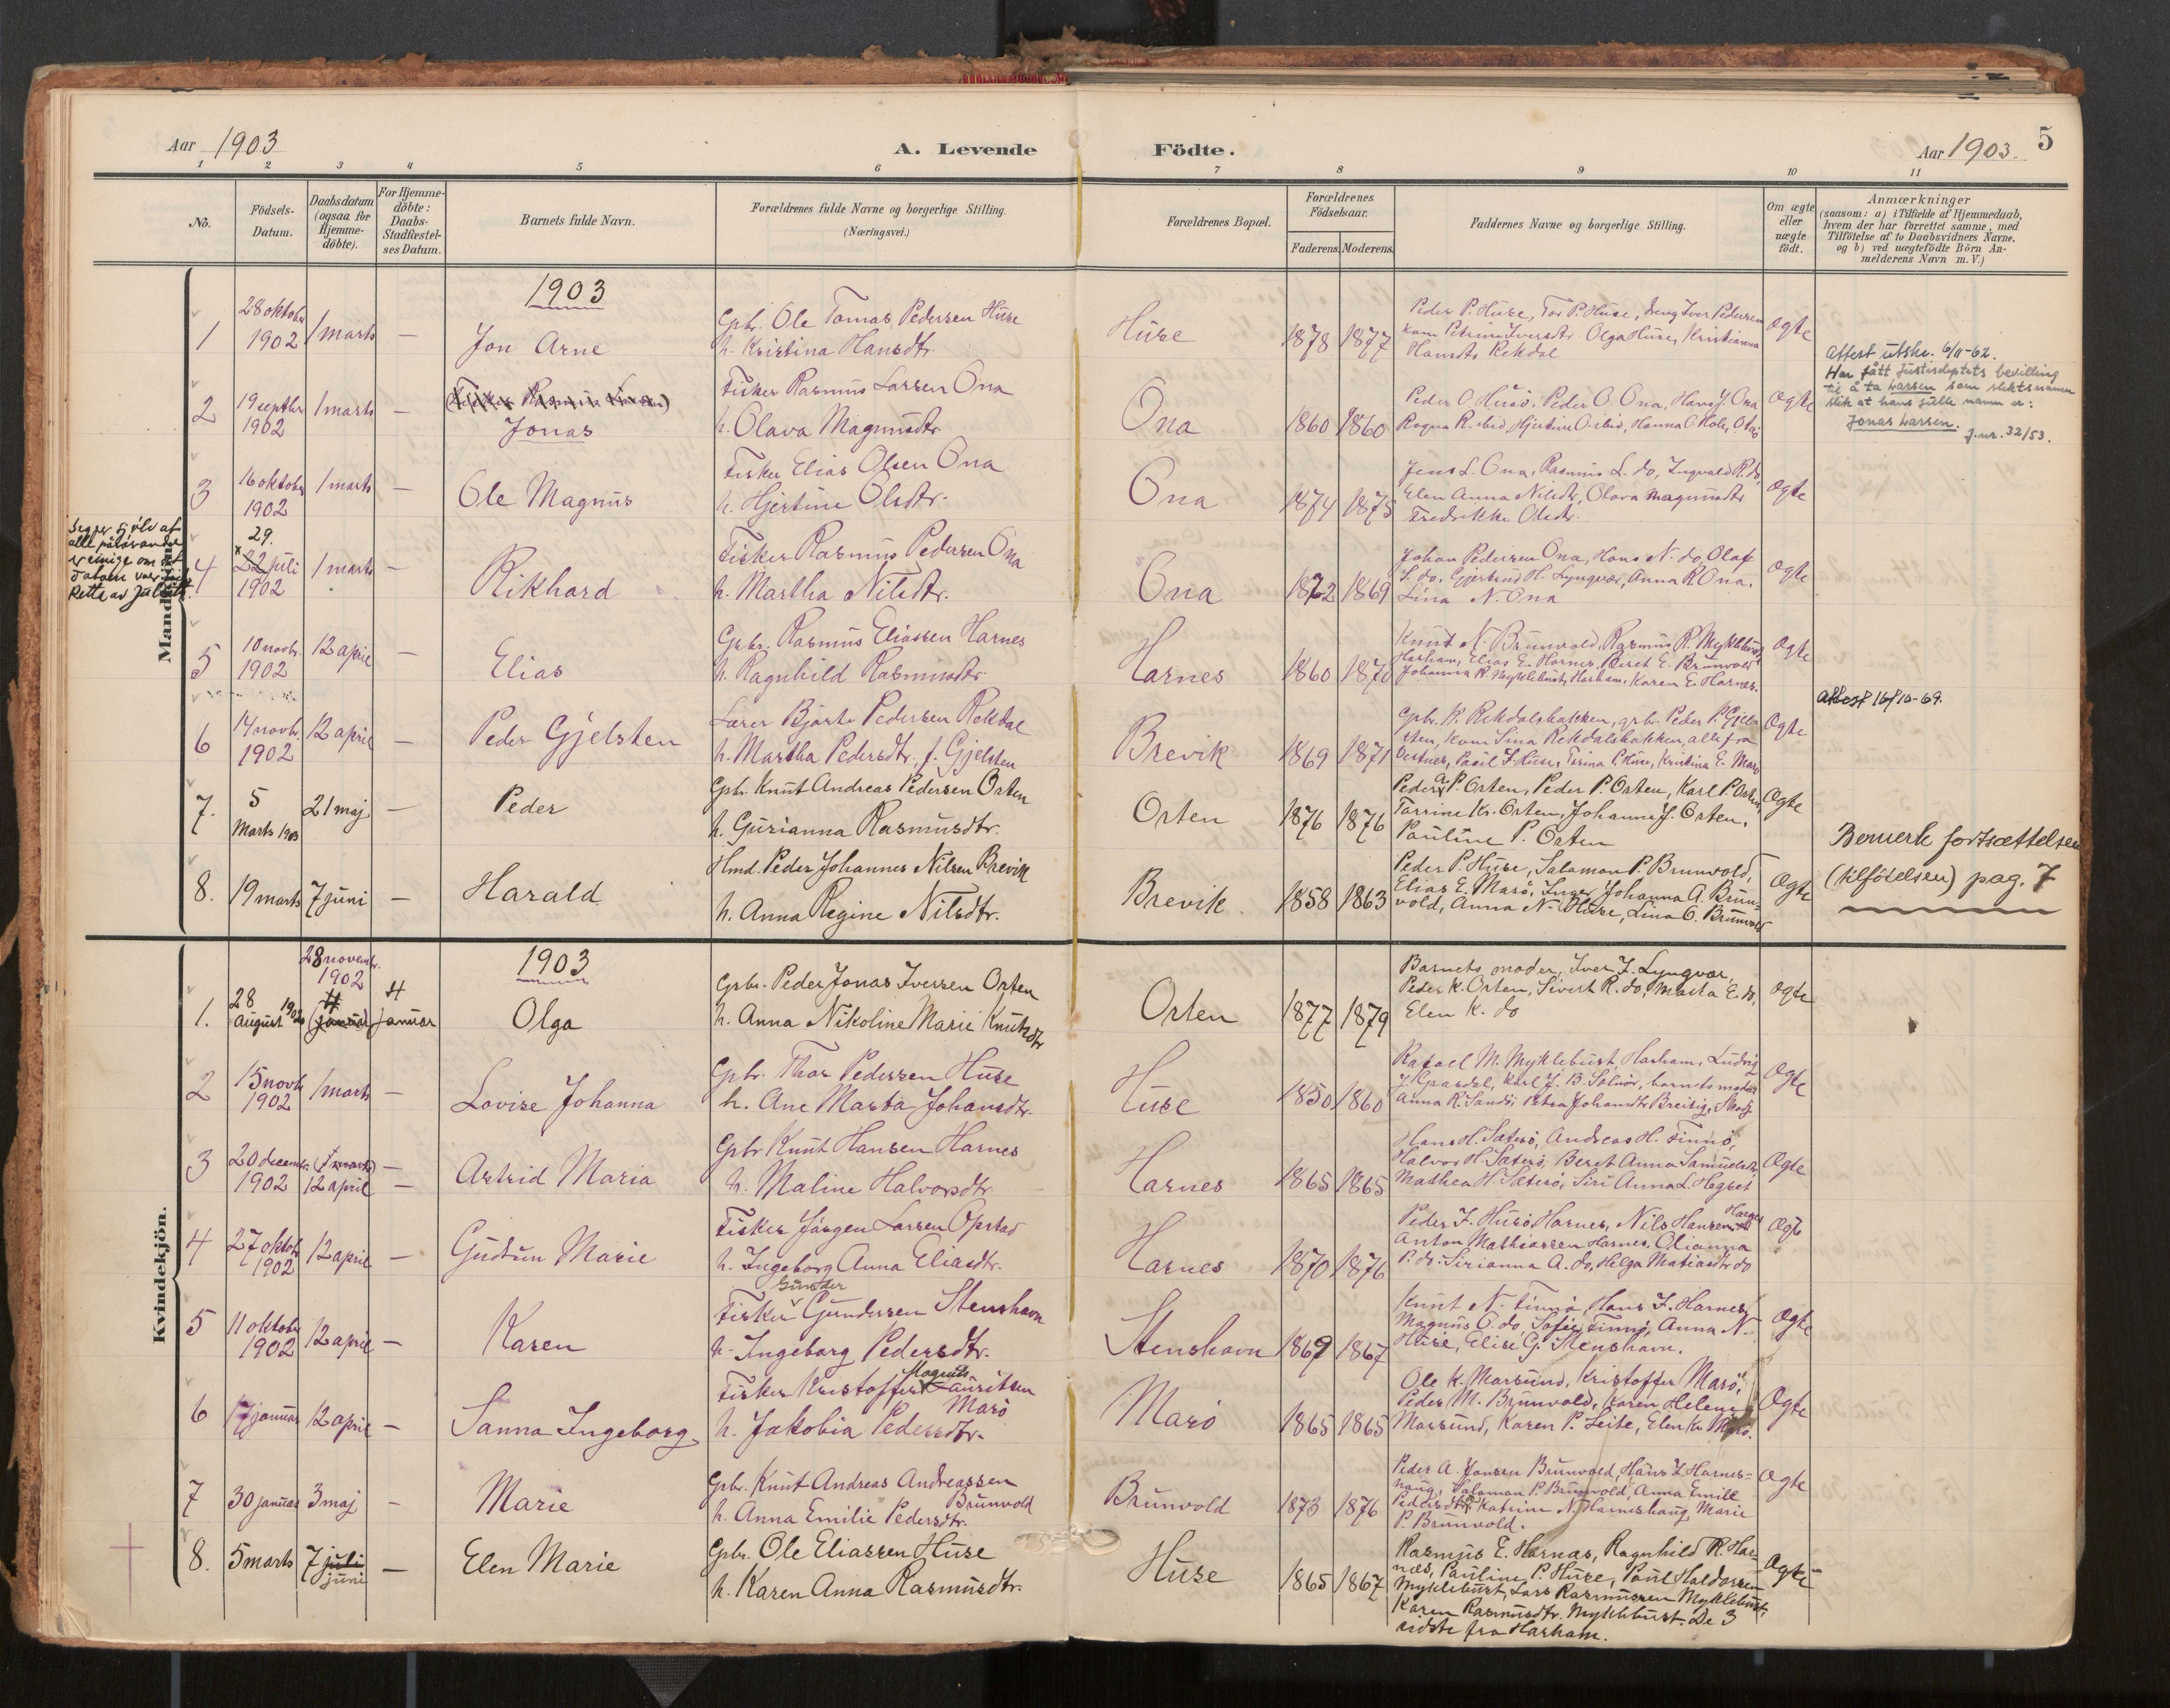 Aar 1903
A. Levende Födte.
Aar 1903.
5
1 2 3 4 5 6 7 8 9 10 11
No.
Födsels-
Datum.
Daabsdatum
(ogsaa for
Hjemme-
döbte).
For Hjemme-
döbte:
Daabs-
Stadfæstel-
ses Datum.
Barnets fulde Navn.
Forældrenes fulde Navne og borgerlige Stilling.
(Næringsvei.)
Forældrenes Bopæl.
Forældrenes
Födselsaar.
Faderens. Moderens.
Faddernes Navne og borgerlige Stilling.
Om ægte
eller
uægte
födt.
Anmærkninger
(saasom: a) i Tilfælde af Hjemmedaab,
hvem der har forrettet samme, med
Tilföielse af to Daabsvidners Navne.
og b) ved uægtefödte Börn An-
melderens Navn m. V.)
Mandkjön.
1903
1
28 oktober
1902
1 marts
—
Jon Arne
Gpbr. Ole Tomas Pedersen Huse
h. Kristina Hansdtr.
Huse
1878 1877
Peder P. Huse, Tor P. Huse, dreng Iver Pedersen
kom Petrine Iversdtr. Olga Huse, Kristianna
Hansdtr Rekdal
Ægte
2
19 septbr
1902
1 marts
—
Jonas
Fisker Rasmus Larsen Ona
h. Olava Magnusdtr.
Ona
1860 1860
Peder O. Husö, Peder O. Ona, Hans J. Ona
Ragna R. ibid, Hjertine O. ibid, Hanna O. Hole,
Ægte
Attest utskr. 6/11-62.
Har fått Justisdeptets bevilling
til å ta Larsen som slektsnamn
slik at hans fulle namn er:
Jonas Larsen.
J.nr. 32/53.
3
16 oktober
1902
1 marts
—
Ole Magnus
Fisker Elias Olsen Ona
h. Hjertine Olsdtr.
Ona
1874 1875
Jens L. Ona, Rasmus L. do, Ingvald R. do,
Elen Anna Nilsdtr, Olava Magnusdtr
Fredrikke Olsdtr.
Ægte
4
29.
x 22 juli
1902
1 marts
—
Rikhard
Fisker Rasmus Pedersen Ona
h. Martha Nilsdtr.
Ona
1872 1869
Johan Pedersen Ona, Hans N. do, Olaf
S. do, Gjertrud H. Lyngvær, Anna R Ona,
Lina N. Ona
Ægte
5
10 novbr.
1902
12 april
—
Elias
Gpbr. Rasmus Eliassen Harnes
h. Ragnhild Rasmusdtr.
Harnes
1860 1870
Knut N. Brunvold, Rasmus R. Myklebust,
Harham, Elias E. Harnes, Beret E. Brunvold
Johanna R. Myklebust, Harham, Karen E. Harnes.
Ægte
6
14 novbr.
1902
12 april
—
Peder Gjelsten
Lærer Bjarte Pedersen Rekdal
h. Martha Pedersdtr., f. Gjelsten
Brevik
1869 1871
Gpbr. K. Rekdalsbakken, gpbr. Peder P. Gjel-
sten, kom Sina Rekdalsbakken, alle fra
Vestnes, Paul I. Huse, Tarina P. Huse, Kristina E. Marö
Ægte
Attest 16/10-69.
7.
5
Marts 1903
21 maj
—
Peder
Gpbr. Knut Andreas Pedersen Orten
h. Gurianna Rasmusdtr.
Orten
1876 1876
Peder A P. Orten, Peder P Orten, Karl P. Orten,
Tarrine Kr. Orten, Johanne J. Orten,
Pauline P. Orten
Ægte
8.
19 marts
7 juni
—
Harald
Hmd. Peder Johannes Nilsen Brevik
h. Anna Regine Nilsdtr.
Brevik
1858 1863
Peder P. Huse, Salamon P. Brunvold,
Elias E. Marö, Inger Johanna A. Brun-
vold, Anna N. Huse, Lina O. Brunvold
Ægte
Bemerk fortsættelsen
(tilföielsen) pag. 7
Kvindekjön.
1903
1.
28
August 1902
28 novembr.
1902
4
(januar)
4
januar
Olga
Gpbr. Peder Jonas Iversen Orten
h. Anna Nikoline Marie Knutsdtr
Orten
1877 1879
Barnets moder, Iver I. Lyngvær,
Peder K. Orten, Sivert R. do, Marta E. do,
Elen K. do
Ægte
2
15 novb
1902
1 marts
—
Lovise Johanna
Gpbr. Thor Pedersen Huse
h. Ane Marta Johansdtr.
Huse
1850 1860
Rafael M. Myklebust, Harham, Ludvig
Karl J. B. Solnör, barnets moder
Anna R. Sandö, Petra Johansdtr
Ægte
3
20 decembr.
1902
(1 marts)
12 april
—
Astrid Maria
Gpbr Knut Hansen Harnes
h. Maline Halvorsdtr.
Harnes
1865 1865
Hans H. Sæterö, Andreas H. Finnö,
Halvor H. Sæterö, Beret Anna Samuelsdtr
Mathea H. Sæterö, Siri Anna L. Hegset
Ægte
4
27 oktob
1902
12 april
—
Gudrun Marie
Fisker Jörgen Larsen Opstad
h. Ingeborg Anna Eliasdtr.
Harnes
1870 1876
Peder I. Husö, Harnes, Nils Hansen
Anton Mathiassen Harnes, Olianna
P. do. Sirianna A. do, Helga Matiasdtr do
Ægte
5
11 oktober
1902
12 april
—
Karen
Gunder
Fisker Gundersen Stenshavn
h. Ingeborg Pedersdtr.
Stenshavn
1869 1867
Knut N. Finnö, Hans I. Harnes,
Magnus O. do, Sofie Finnö, Anna N.
Huse, Elise G. Stenshavn.
Ægte
6
17 januar
12 april
—
Sanna Ingeborg
Fisker Kristoffer Lauritsen
Marö
h. Jakobia Pedersdtr.
Marö
1865 1865
Ole K. Marsund, Kristoffer Marö,
Peder M. Brunvold, Karen Helene
Marsund, Karen P. Leite, Elen K. Marö.
Ægte
7
30 januar
3 maj
—
Marie
Gpbr. Knut Andreas Andreassen
Brunvold
h. Anna Emilie Pedersdtr.
Brunvold
1873 1876
Peder A. Jonsen Brunvold, Hans I. Harnes-
haug, Salamon P. Brunvold, Anna Emilie
Pedersdtr, Katrine N. Harneshaug, Marie
P. Brunvold.
Ægte
8.
5 marts
7 juli
juni
—
Elen Marie
Gpbr. Ole Eliassen Huse
h. Karen Anna Rasmusdtr.
Huse
1865 1867
Rasmus E. Harnæs, Ragnhild R. Har-
næs, Pauline P. Huse, Paul Haldorsen
Myklebust, Lars Rasmussen Myklebust,
Karen Rasmusdtr. Myklebust. De 3
sidste fra Harham.
Ægte